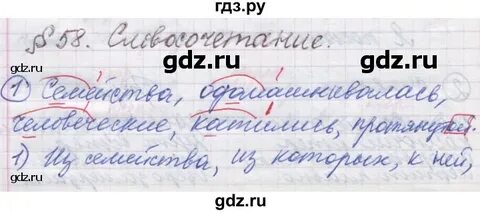 гдз.ру
§ 58. Словосочетание.
1 Семейства, одомашнивалась,
человеческие, катились, протянутой.
1) Из семейства, из которых, к ней,
gdz.ru gdz.ru gdz.ru